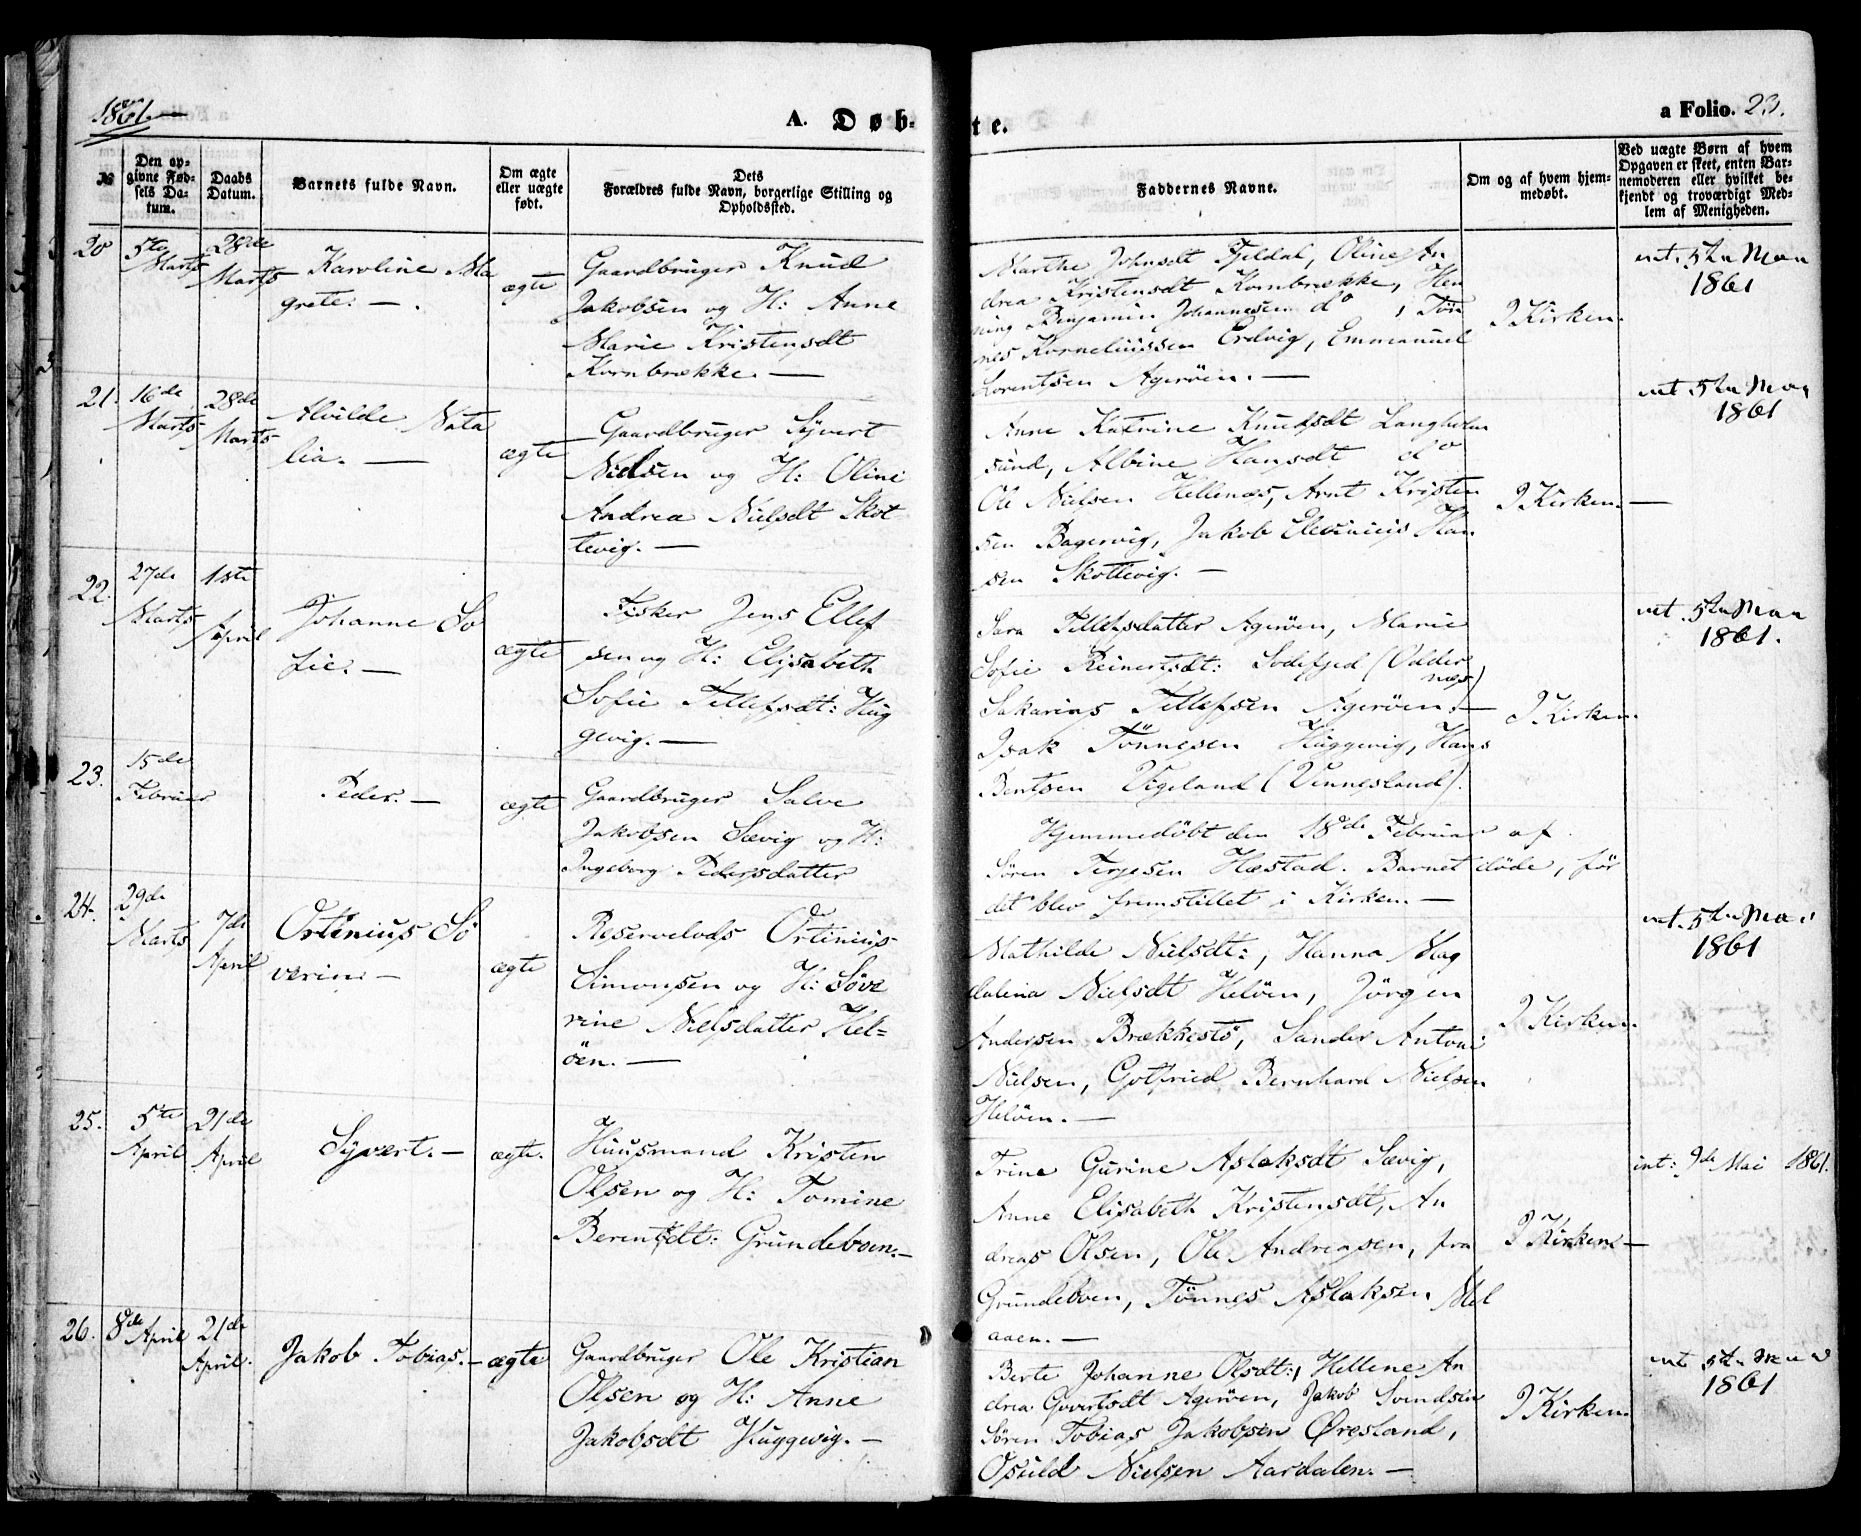 1861.
A. Døbte.
a Folio. 23.
№
Den opgivne Fødsels Datum.
Daabs Datum.
Barnets fulde Navn.
Om ægte eller uægte født.
Dets Forældres fulde Navn, borgerlige Stilling og Opholdssted.
Faddernes Navne.
Om og af hvem hjemmedøbt.
Ved uægte Børn af hvem Opgaven er skeet, enten Barnemoderen eller hvilket bekjendt og troværdigt Medlem af Menigheden.
20 5te Marts 28de Marts
Karoline Ma
grete. —
ægte
Gaardbruger Knud
Jakobsen og H: Anne
Marie Kristensdt
Kornbrække. —
Marthe Johnsdt Fjeldal, Oline An
drea Kristensdt Kornbrække, Hen
ning Benjamin Johannesen do, Tön
nes Korneliussen Erdvig, Emmanuel
Lorentsen Agerøen. —
I Kirken.
int. 5te Mai
1861
21. 16de Marts 28de Marts
Alvilde Nata
lia. —
ægte
Gaardbruger Syvert
Nielsen og H: Oline
Andrea Nielsdt Skot
tevig. —
Anne Katrine Knudsdt Langholm
sund, Albine Hansdt do
Ole Nielsen Hellenæs, Arnt Kristen
sen Bagervig, Jakob Elevinius Han
sen Skottevig. —
I Kirken. —
int 5te Mai
1861
22. 27de Marts 1ste April
Johanne So
fie. —
ægte
Fisker Jens Ellef
sen og H: Elisabeth
Sofie Tellefsdt: Hug
gevig. —
Sara Tellefsdatter Agerøen, Marie
Sofie Reinertsdt: Sodefjed (Odder
næs)
Sakarias Tellefsen Agerøen. —
Isak Tönnesen Huggevig, Hans
Bentsen Vigeland (Vennesland).
I Kirken.
int. 5te Mai
1861.
23. 15de Februar
Peder. —
ægte
Gaardbruger Salve
Jakobsen Sævig og H:
Ingeborg Pedersdatter
Hjemmedöbt den 18de Februar af
Sören Terjesen Hæstad. Barnet döde, för
det blev fremstillet i Kirken. —
24. 29de Marts 7de April
Ortinius Sö
verin. —
ægte
Reservelods Ortinius
Simonsen og H: Söve
rine Nielsdatter Hel=
öen. —
Mathilde Nielsdt:, Hanna Mag
dalena Nielsdt Helöen, Jörgen
Andersen Brækkestö, Sander Antoni
Nielsen, Gotfried Bernhard Nielsen
Helöen. —
I Kirken.
int. 5te Mai
1861
25. 5te April 21de April
Syvert. —
ægte.
Huusmand Kristen
Olsen og H: Tomine
Berentsdt: Grundeboen. —
Trine Gurine Aslaksdt Sævig,
Anne Elisabeth Kristensdt, An
dreas Olsen, Ole Andreasen, fra
Grundeboen, Tönnes Aslaksen Mel
aaen. —
I Kirken —
int: 9de Mai 1861.
26. 8de April 21de April.
Jakob Tobias. —
ægte
Gaardbruger Ole Kristian
Olsen og H: Anne
Jakobsdt Huggevig. —
Berte Johanne Olsdt:, Hellene An
drea Govertsdt Agerøen, Jakob Svendsen
Sören Tobias Jakobsen Øresland,
Osuld Nielsen Aardalen. —
I Kirken.
int 5te Mai
1861